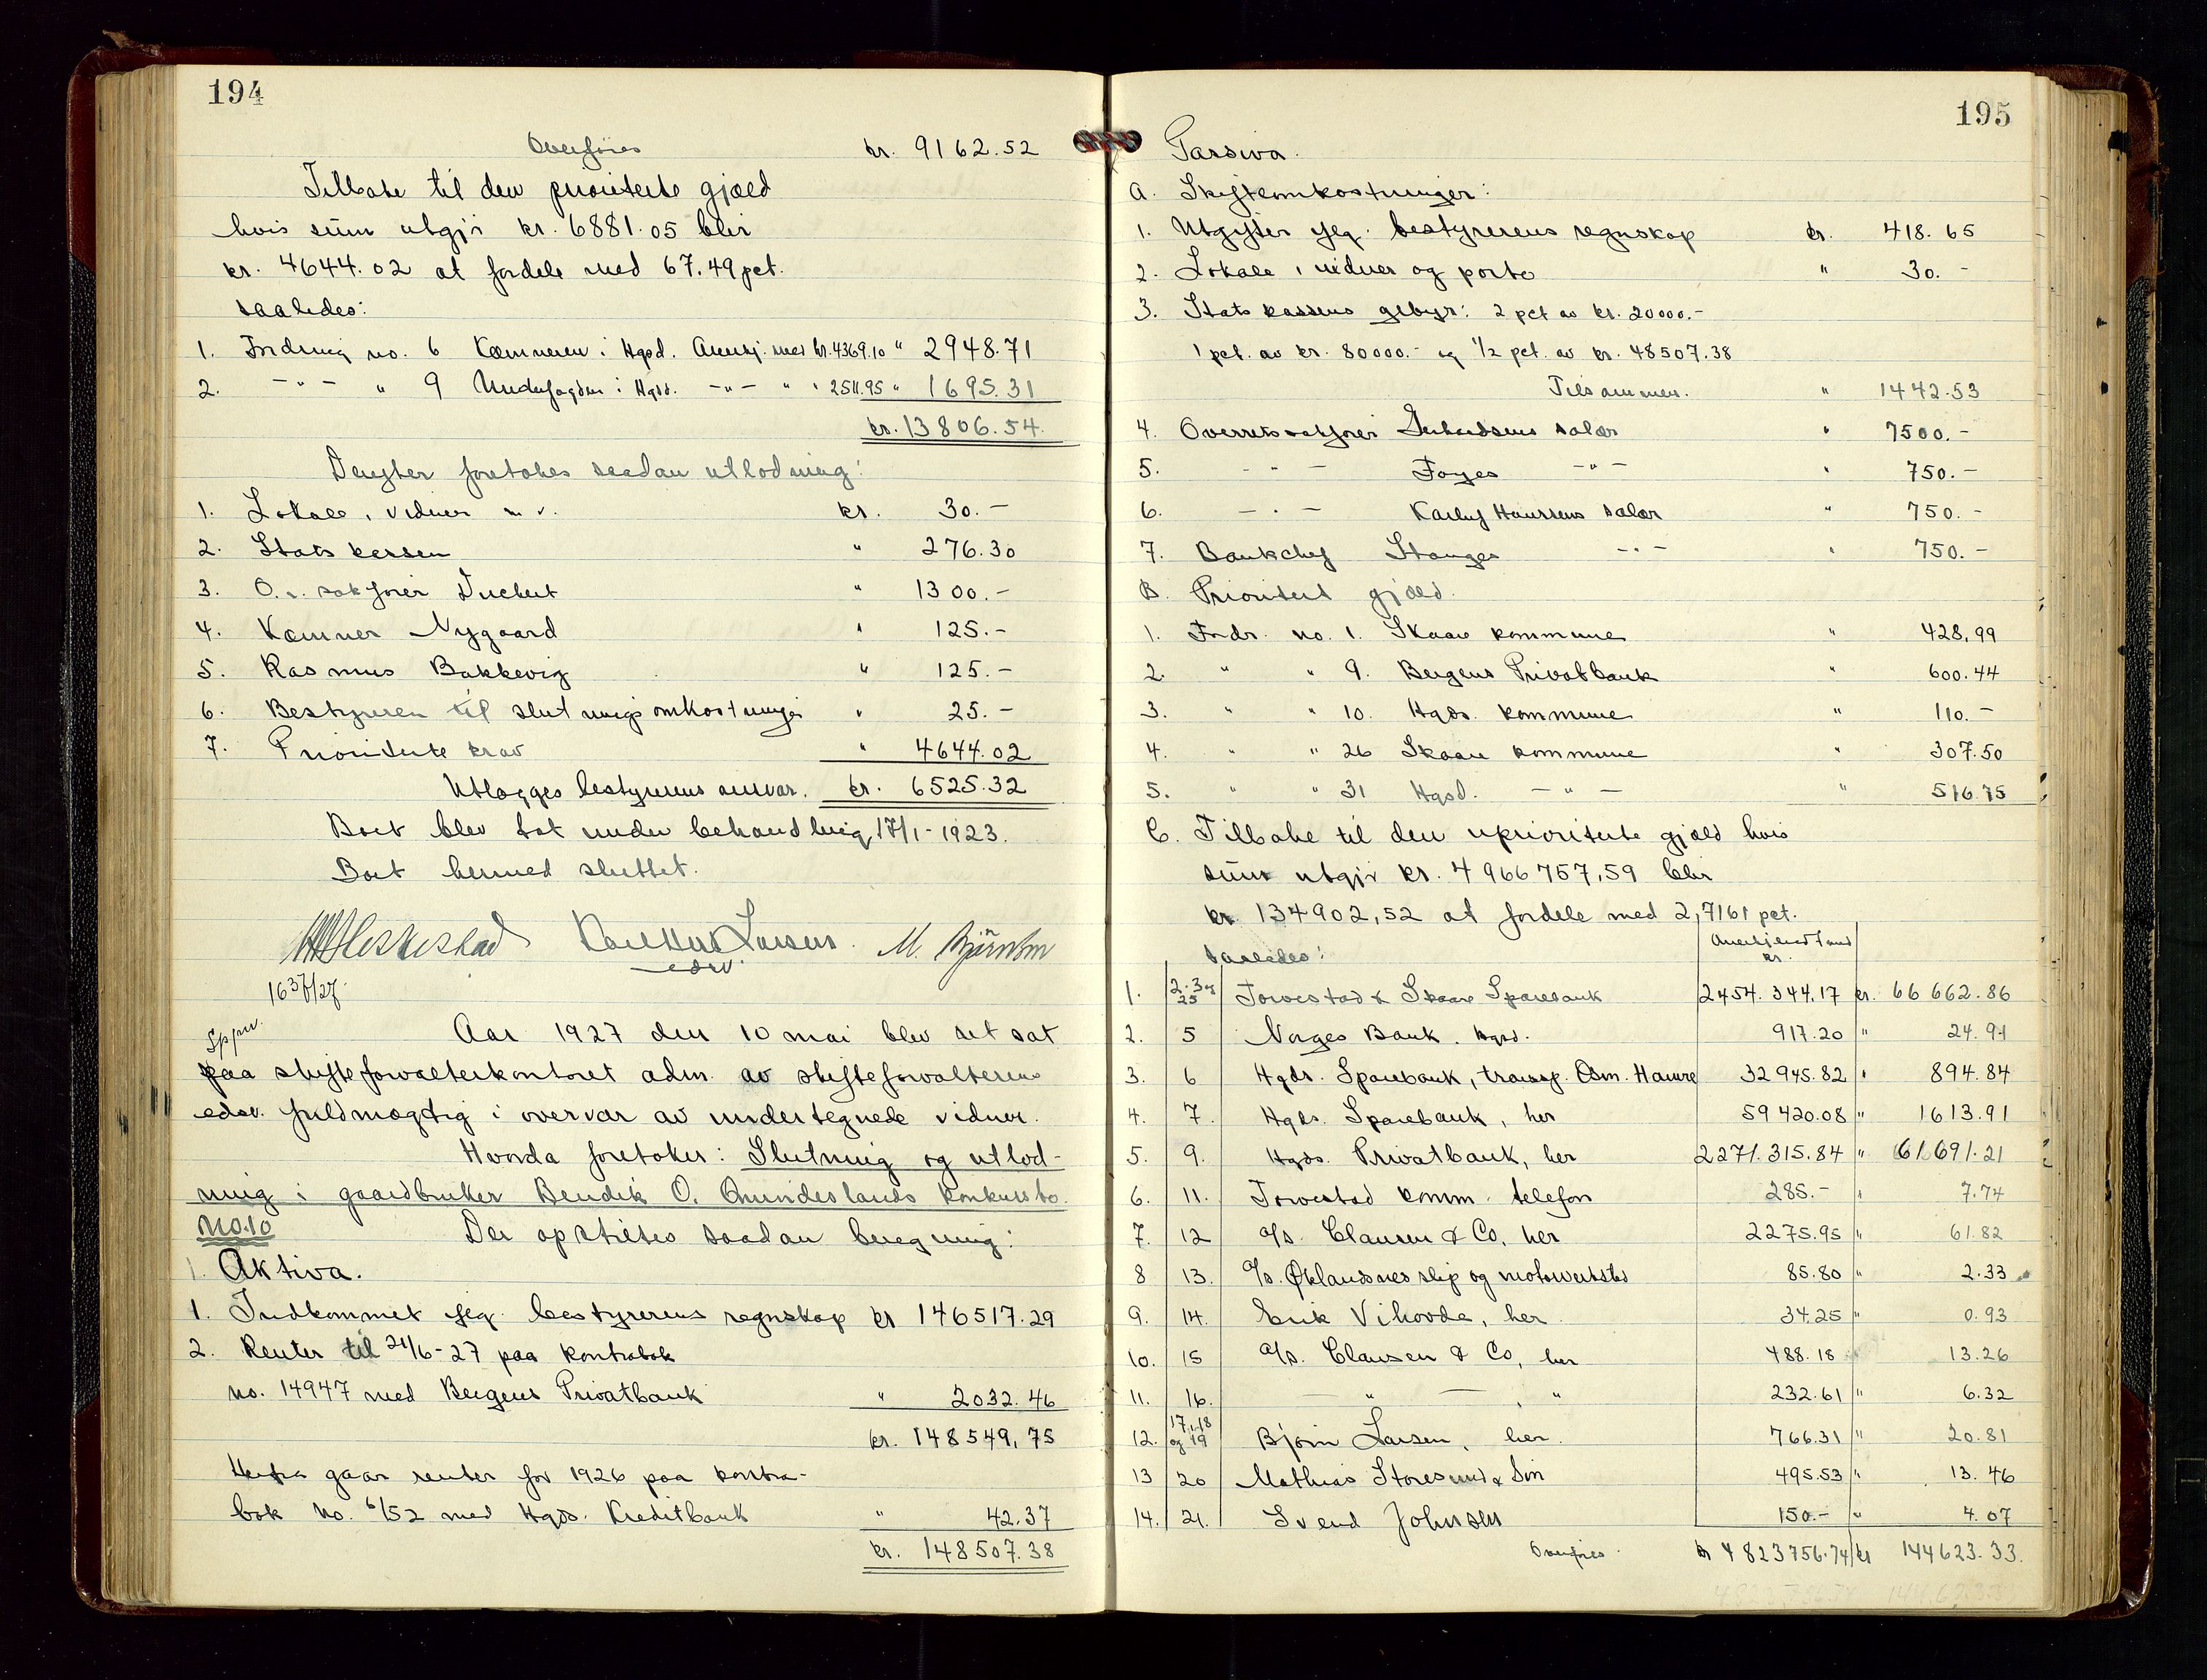 194
Overføres kr. 9162.52
Tilbake til den prioriterte gjæld
hvis sum utgjør kr. 6881.05 blir
kr. 4644.02 at fordele med 67.49 pct.
saaledes:
1. Fordring no. 6 Kæmneren i Hgsd. Anerkj. med kr. 4369.10 " 2948.71
2. -"- " 9 Underfogden i Hgsd. -"- " " 2511.95 " 1695.31
kr. 13806.54
Derefter foretakes saadan utlodning:
1. Lokale, vidner m.v. kr. 30.-
2. Statskassen " 276.30
3. O.r.sakfører Duckert " 1300.-
4. Kæmner Nygaard " 125.-
5. Rasmus Bakkevig " 125.-
6. Bestyreren til slutningsomkostninger " 25.-
7. Prioriterte krav " 4644.02
Utlægges bestyrerens ansvar. kr. 6525.32
Boet blev tat under behandling 17/1-1923.
Boet hermed sluttet.
Larsen. M. Bjørnson
edsv.
Aar 1927 den 10 mai blev ret sat
paa skifteforvalterkontoret adm. av skifteforvalterens
edsv. fuldmægtig i overvær av undertegnede vidner.
Hvorda foretokes: Slutning og utlod-
ning i gaardbruker Bendik O. Amundeslands konkursbo.
No. 10 Der opstilles saadan beregning:
1. Aktiva.
1. Indkommet iflg. bestyrerens regnskap kr 146517.29
2. Renter til 21/6-27 paa kontrabok
no. 14947 med Bergens Privatbank " 2032.46
kr. 148549,75
Herfra gaar renter for 1926 paa kontra-
bok no. 6/52 med Hgds. Kreditbank " 42.37
kr. 148507.38
195
Passiva.
A. Skifteomkostninger:
1. Utgifter iflg. bestyrerens regnskap kr. 418.65
2. Lokale, vidner og porto " 30.-
3. Statskassens gebyr: 2 pct av kr. 20000.-
1 pct. av kr. 80000.- og 1/2 pct. av kr. 48507.38
Tilsammen. " 1442.53
4. Overretssakfører salær " 7500.-
5. -"- Foyes -"- " 750.-
6. -"- Karluf Hanssens salær " 750.-
7. Bankchef Stanges -"- " 750.-
B. Prioritert gjæld.
1. Fordr. no. 1. Skaare kommune " 428,99
2. " " 9. Bergens Privatbank " 600.44
3. " " 10. Hgds. kommune " 110.-
4. " " 26 Skaare kommune " 307.50
5. " " 31 Hgsd. -"- " 516.75
C. Tilbake til den uprioriterte gjæld hvis
sum utgjør kr. 4966757,59 blir
kr. 134902,52 at fordele med 2,7161 pct.
saaledes: Anerkjendt med kr.
1. 2.3 og 25 Torvestad & Skaare Sparebank 2454.344.17 kr. 66662.86
2. 5 Norges Bank. Hgsd. 917.20 " 24.91
3. 6 Hgds. Sparebank, transp. Osm. Haure 32945.82 " 894.84
4. 7 Hgds. Sparebank, her 59420.08 " 1613.91
5. 9. Hgds. Privatbank, her 2271.315.84 " 61691.21
6. 11. Torvestad komm. telefon 285.- " 7.74
7. 12 A/S. Clausen & Co, her 2275.95 " 61.82
8 13. A/S. Øklandsnes slip og motorverksted 85.80 " 2.33
9. 14. Erik Vihovde, her 34.25 " 0.93
10. 15 A/S. Clausen & Co, her 488.18 " 13.26
11. 16. - " - " 232.61 " 6.32
12. 17, 18 og 19 Bjørn Larsen, her. 766.31 " 20.81
13 20 Mathias Storesund & Søn 495.53 " 13.46
14. 21. Svend Johnsen 150.- " 4.07
Overføres kr 4823756.74 kr 144623.33.